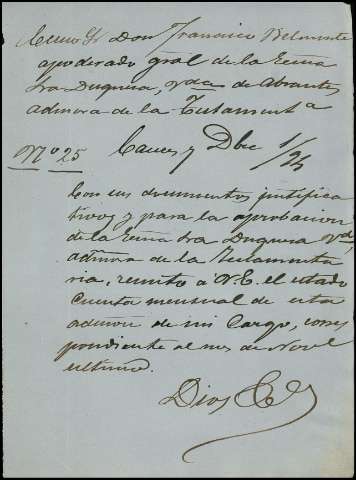 Excmo Sr Don Francisco Belmonte
apoderado gral de la Excma
Sra Duquesa, vda de Abrantes
admora de la Testamentª
Nº 25 Cauces y Dbre 1/75
Con sus documentos justifica
tivos y para la aprobacion
de la Excma Sra Duquesa vda,
admora de la Testamenta
ria, remito á V.E. el estado
Cuenta mensual de esta
admon de mi Cargo, corres
pondiente al mes de Nove
ultimo.
Dios &